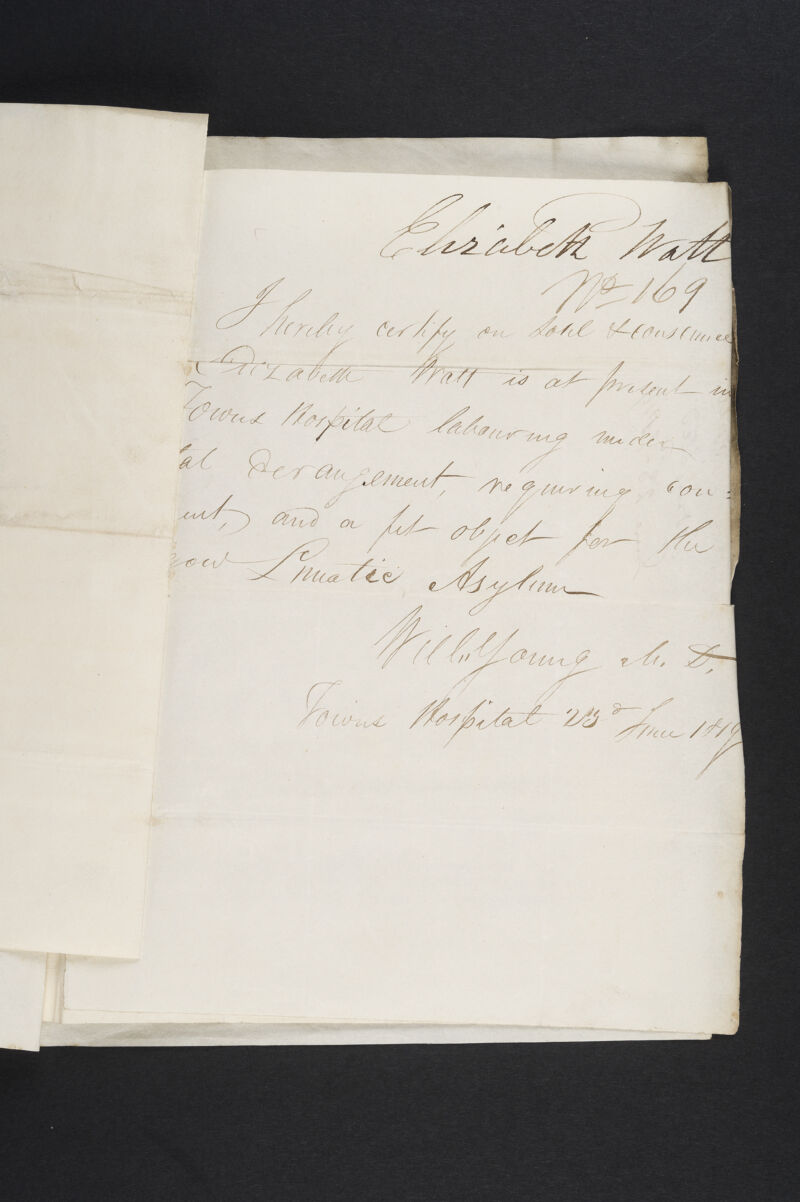 Elizabeth Watt
No 169
I hereby certify on soul & consience
Elizabeth Watt is at present in
Towns Hospital labouring under
tal Derangement, requiring con=
ent, and a fit object for the
gow Lunatic Asylum
Will. Young M. D.
Towns Hospital 23d June 1819